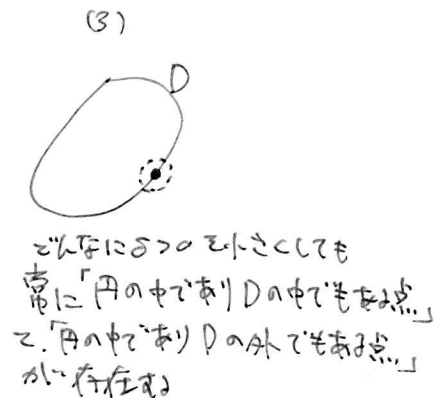 (3)
D
どんなにδ>0を小さくしても
常に「円の中でありDの中でもある点」
と、「円の中でありDの外でもある点」
が存在する